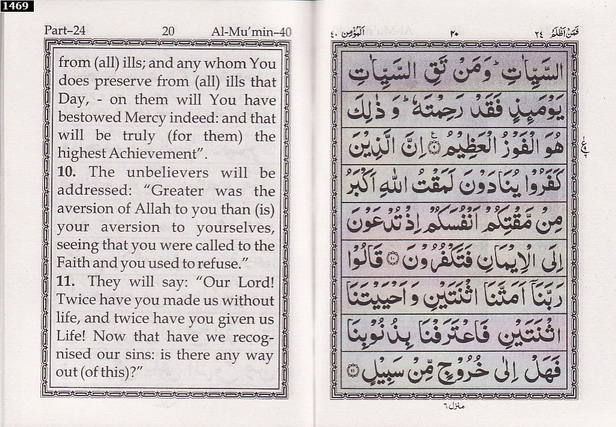 1469
Part-24 20 Al-Mu'min-40
from (all) ills; and any whom You
does preserve from (all) ills that
Day, - on them will You have
bestowed Mercy indeed: and that
will be truly (for them) the
highest Achievement”.
10. The unbelievers will be
addressed: “Greater was the
aversion of Allah to you than (is)
your aversion to yourselves,
seeing that you were called to the
Faith and you used to refuse.”
11. They will say: “Our Lord!
Twice have you made us without
life, and twice have you given us
Life! Now that have we recog-
nised our sins: is there any way
out (of this)?”
فَمَنْ اَظْلَمُ ٢٤ ٢٠ اَلْمُؤْمِن ٤٠
السَّيِّاٰتِ ؕ وَمَنْ تَقِ السَّيِّاٰتِ
يَوْمَىِٕذٍ فَقَدْ رَحِمْتَهٗ ؕ وَ ذٰلِكَ
هُوَ الْفَوْزُ الْعَظِيْمُ ۹ اِنَّ الَّذِيْنَ
كَفَرُوْا يُنَادَوْنَ لَمَقْتُ اللّٰهِ اَكْبَرُ
مِنْ مَّقْتِكُمْ اَنْفُسَكُمْ اِذْ تُدْعَوْنَ
اِلَى الْاِيْمَانِ فَتَكْفُرُوْنَ ۱۰ قَالُوْا
رَبَّنَاۤ اَمَتَّنَا اثْنَتَيْنِ وَ اَحْيَيْتَنَا
اثْنَتَيْنِ فَاعْتَرَفْنَا بِذُنُوْبِنَا
فَهَلْ اِلٰى خُرُوْجٍ مِّنْ سَبِيْلٍ ۱۱
منزل ٦